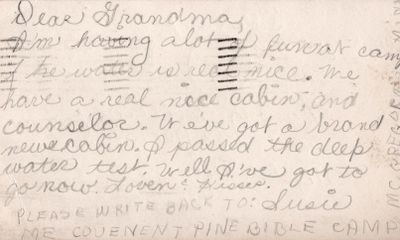 Dear Grandma,
I'm having alot of fun at camp
The water is real nice. We
have a real nice cabin, and
counselor. We've got a brand
new cabin. I passed the deep
water test. Well I've got to
go now. Loven & Kisses.
PLEASE WRITE BACK TO: Susie
ME COVENENT PINE BIBLE CAMP